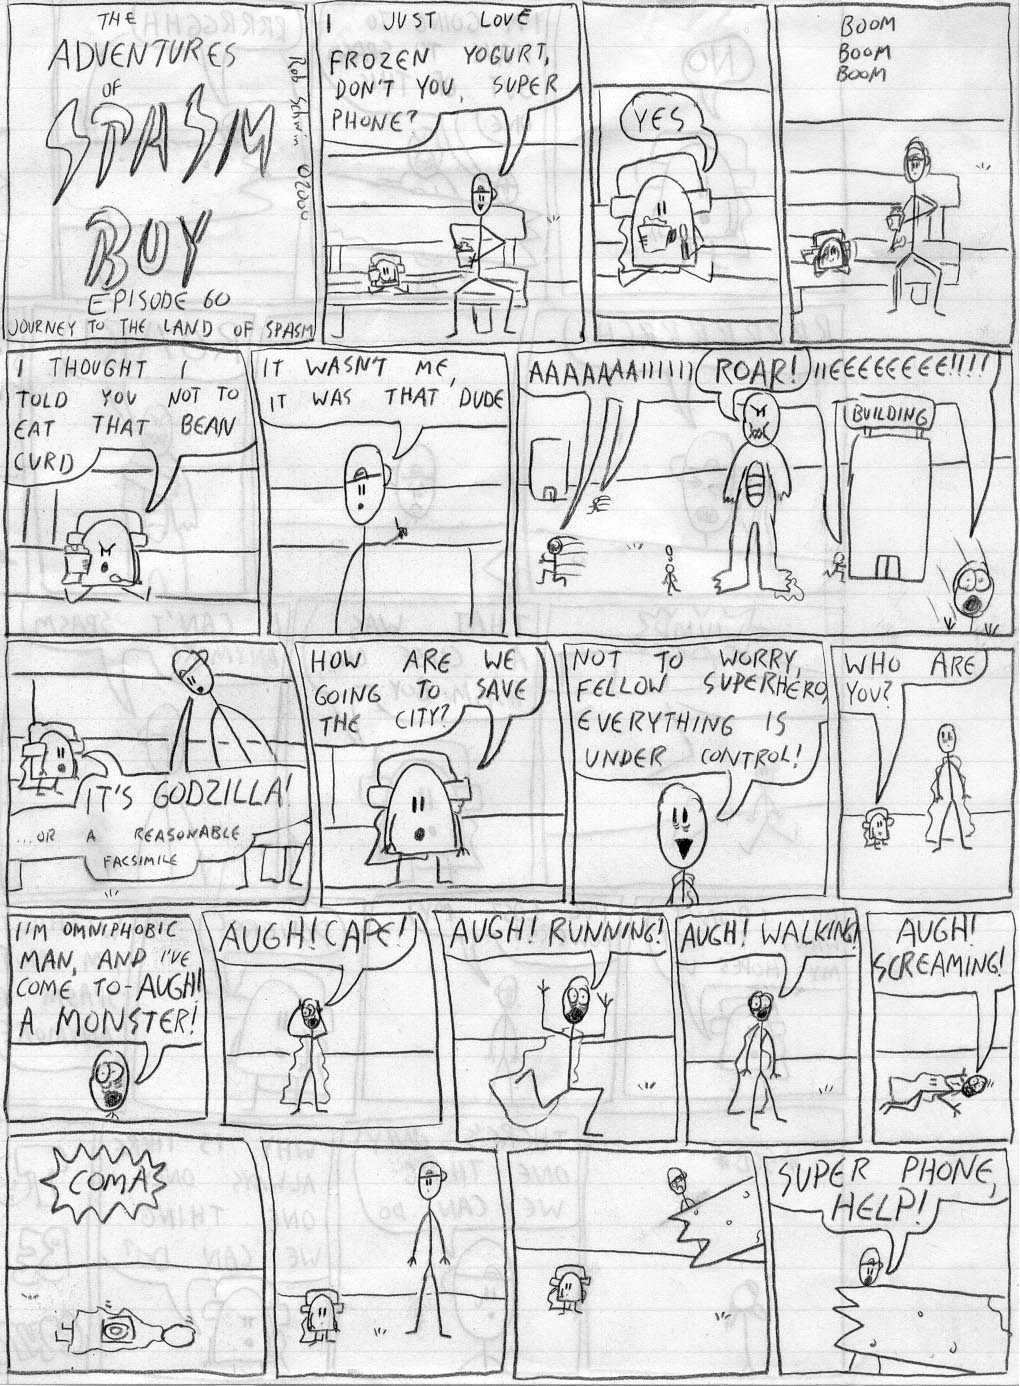 THE
ADVENTURES
OF
SPASM
BOY
EPISODE 60
JOURNEY TO THE LAND OF SPASM
Rob Schwin ©2000
I JUST LOVE
FROZEN YOGURT,
DON'T YOU, SUPER
PHONE?
YES
BOOM
BOOM
BOOM
I THOUGHT I
TOLD YOU NOT TO
EAT THAT BEAN
CURD
IT WASN'T ME,
IT WAS THAT DUDE
AAAAAAAIIIIII
ROAR!
IIEEEEEEEE!!!!
BUILDING
IT'S GODZILLA!
...OR A REASONABLE
FACSIMILE
HOW ARE WE
GOING TO SAVE
THE CITY?
NOT TO WORRY,
FELLOW SUPERHERO,
EVERYTHING IS
UNDER CONTROL!
WHO ARE
YOU?
I'M OMNIPHOBIC
MAN, AND I'VE
COME TO-AUGH!
A MONSTER!
AUGH! CAPE!
AUGH! RUNNING!
AUGH! WALKING!
AUGH!
SCREAMING!
COMA
SUPER PHONE,
HELP!